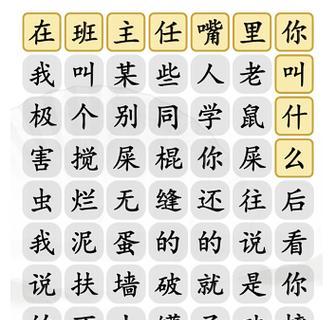 在班主任嘴里你
我叫某些人老叫
极个别同学鼠什
害搅屎棍你屎么
虫烂无缝还往后
我泥蛋的的说看
说扶墙破就是你